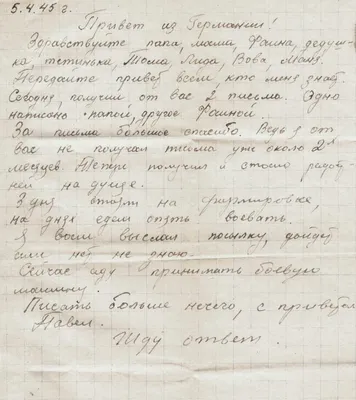 5.4.45 г.
Привет из Германии!
Здравствуйте папа, мама, Фаина, дедуш-
ка, тетинька, Тома, Лида, Вова, Маня.
Передайте привет всем, кто меня знает.
Сегодня, получил от вас 2 письма. Одно
написано папой, другое Фаиной.
За письма большое спасибо. Ведь я от
вас не получал письма уже около 2х
месяцев. Теперь получил и стало радост-
ней на душе.
3 дня стоим на формировке,
на днях едем опять воевать.
Я вам выслал посылку, дойдет
или нет не знаю.
Сейчас иду принимать боевую
машину.
Писать больше нечего, с приветом
Павел.
Жду ответ.